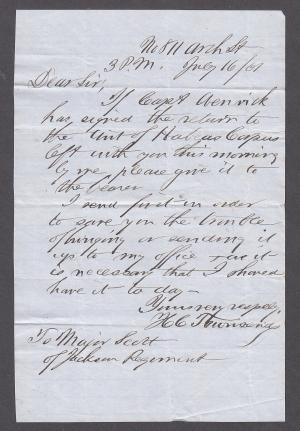 No 811 Arch St
3 P.M. July 16/61
Dear Sir,
If Capt
has signed the return to
the Writ of Habeas Corpus
left with you this morning
by me, please give it to
the bearer
I send first in order
to save you the trouble
of bringing or sending it
up to my office it
is necessary that I should
have it to day—
Yours very respy,
H C Townsend
To Major Scott
of Jackson Regiment